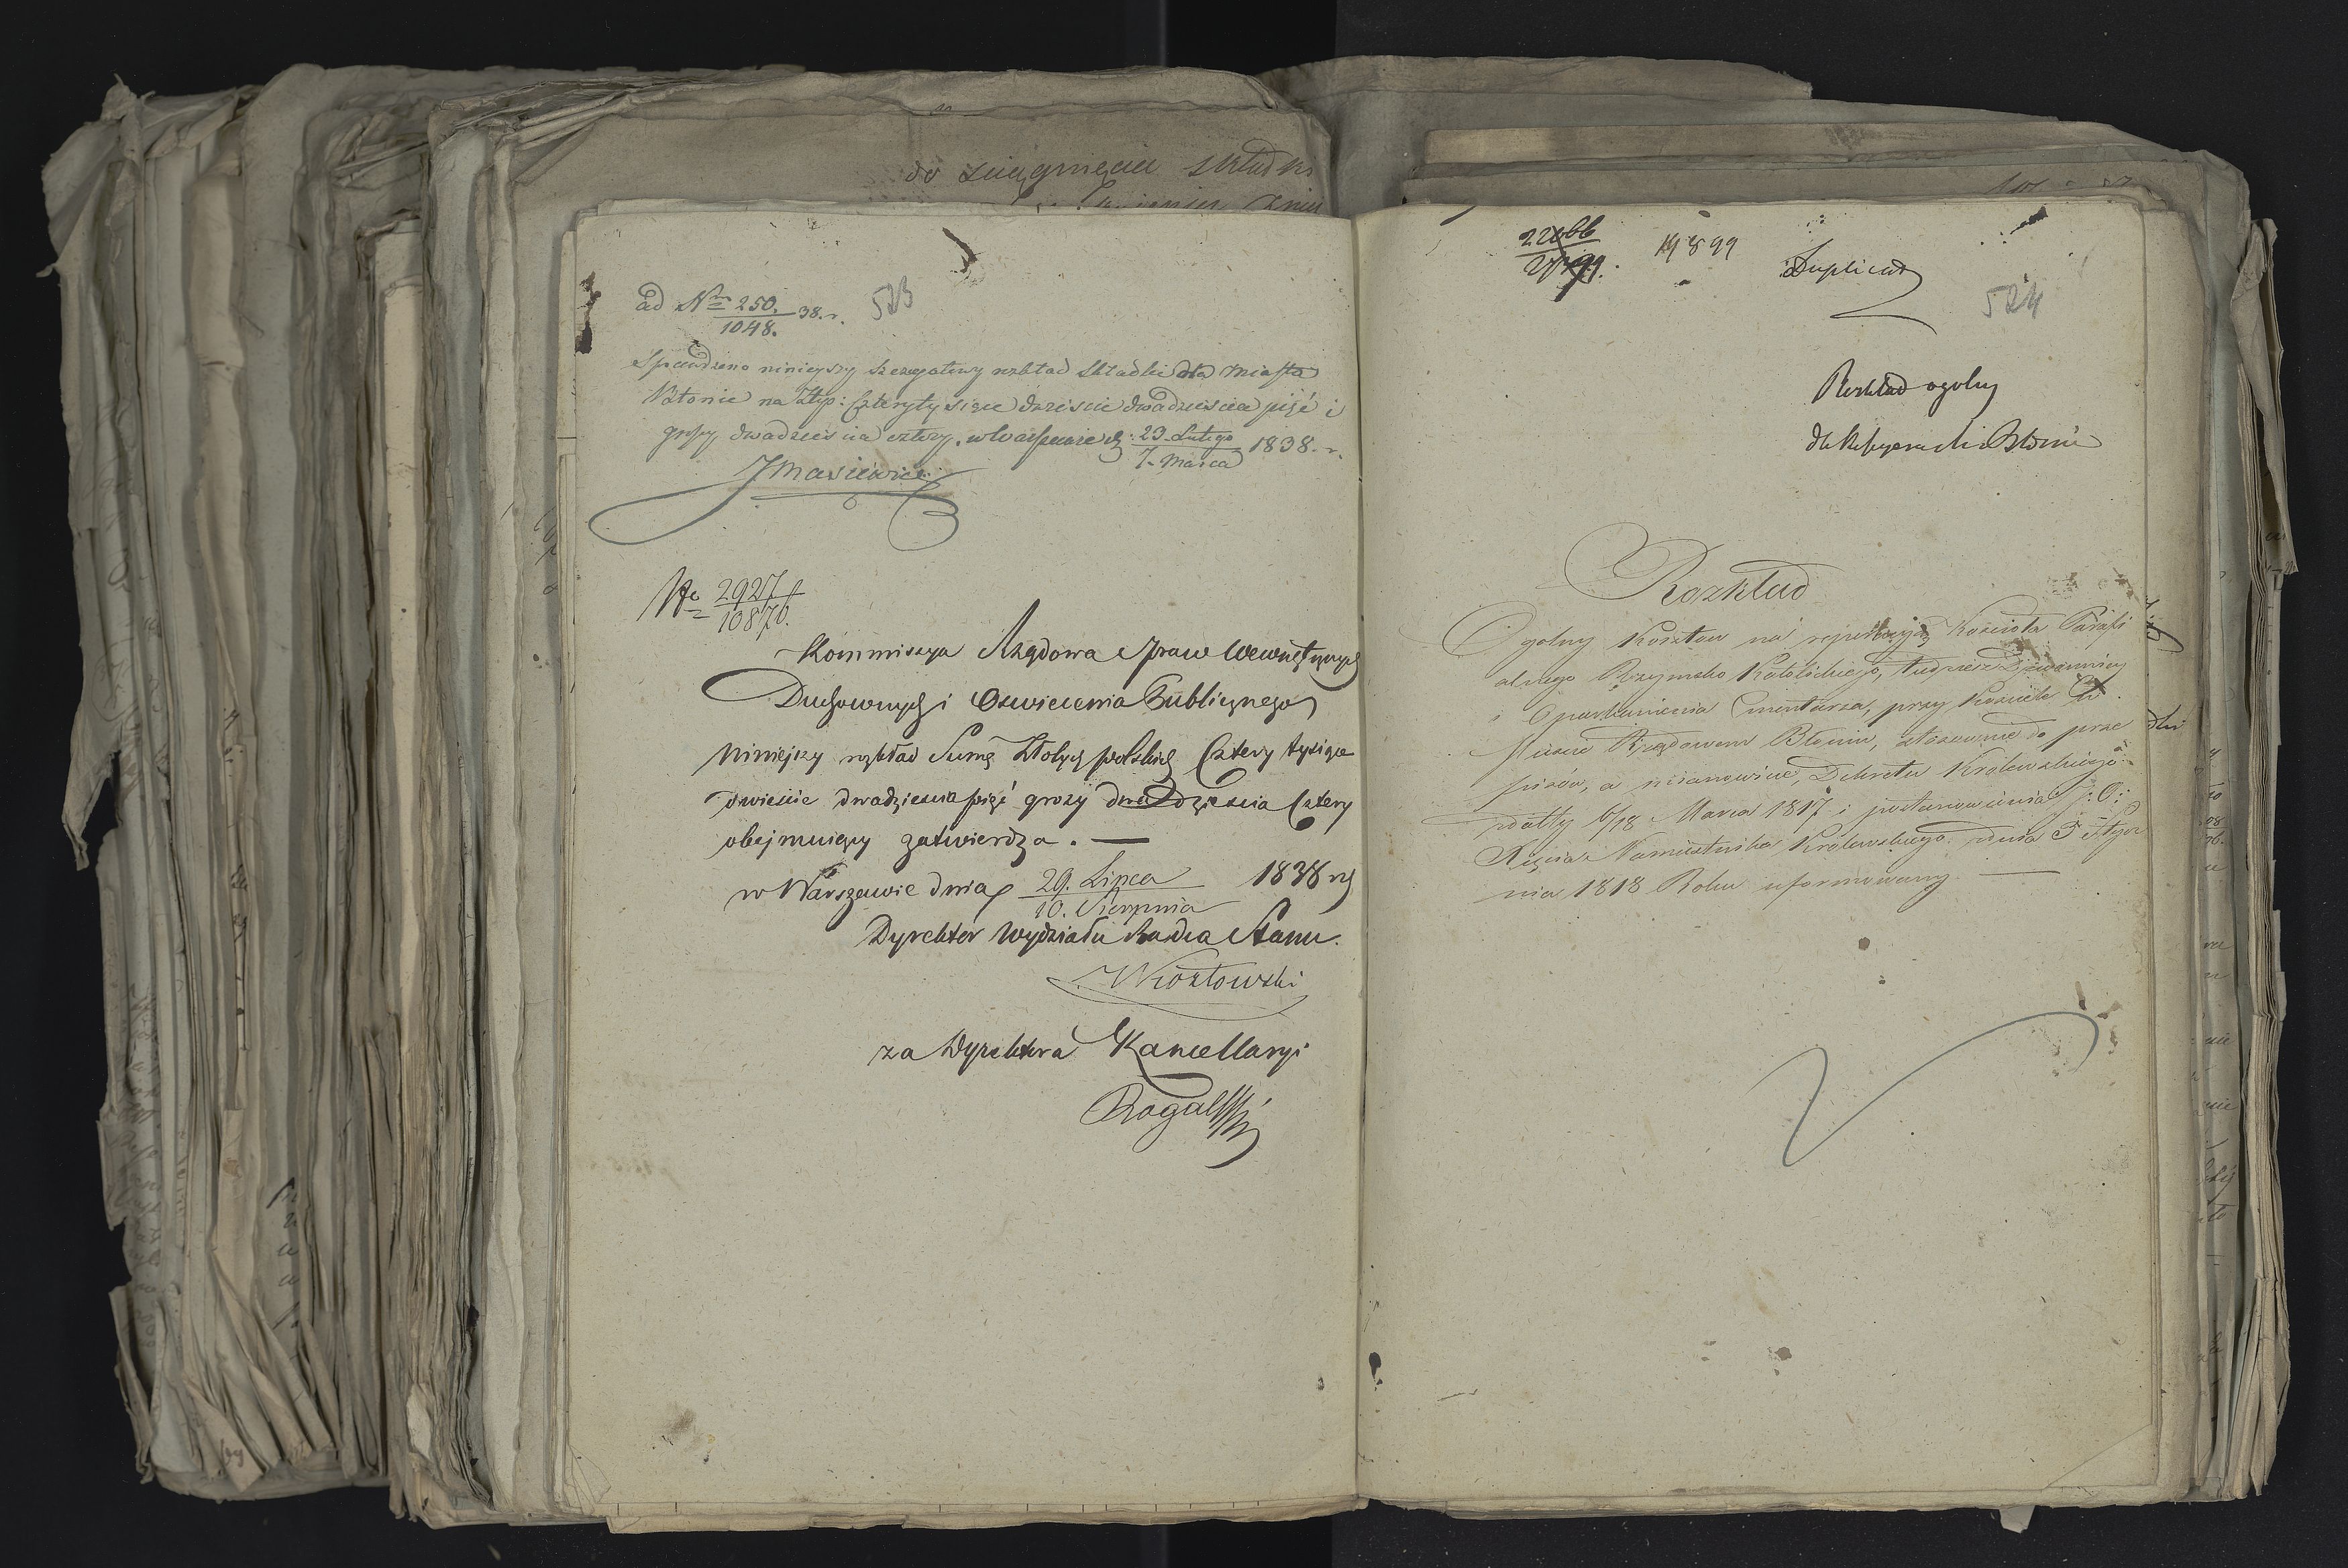 do sciągnięcia składki
ad Nrm 250. 38. r. 523
1048.
Sprawdzono niniejszy szczegółowy rozkład składki dla Miasta
Błonie na Złtp: cztery tysiące dwieście dwadzieścia pięć i
groszy dwadzieścia cztery. w Warszawie d: 23. Lutego 1838. r.
7. Marca
J Masiewicz
No 2927
10870.
Kommissya Rządowa Spraw Wewnętrznych
Duchownych i Oswiecenia Publicznego
Niniejszy rozkład Sumę Złotych polskich Cztery tysiące
dwieście dwadzieścia pięć groszy dwadzieścia Cztery
obejmuiący zatwierdza. —
w Warszawie dnia 29. Lipca 1838 r
10. Sierpnia
Dyrektor Wydziału Radca Stanu.
Kozłowski
za Dyrektora Kancellaryi
Rogalski
22866
19899
Duplicat
524
Rozkład ogolny
dla Błonia
Rozkład
Ogolny Kosztow na reperacyą Kościoła Parafi
alnego Rzymsko Katolickiego, tudziesz Dzwonnicy
i Oparkanienia Cmentarza, przy Kościele w
Mieście Rządowem Błoniu, stosownie do prze
pisów, a mianowicie, Dekretu Królewskiego
z datty 6/18 Marca 1817 i postanowienia J: O:
Xięcia Namiestnika Królewskiego dnia 3 Stycz
nia 1818 Roku uformowany. —